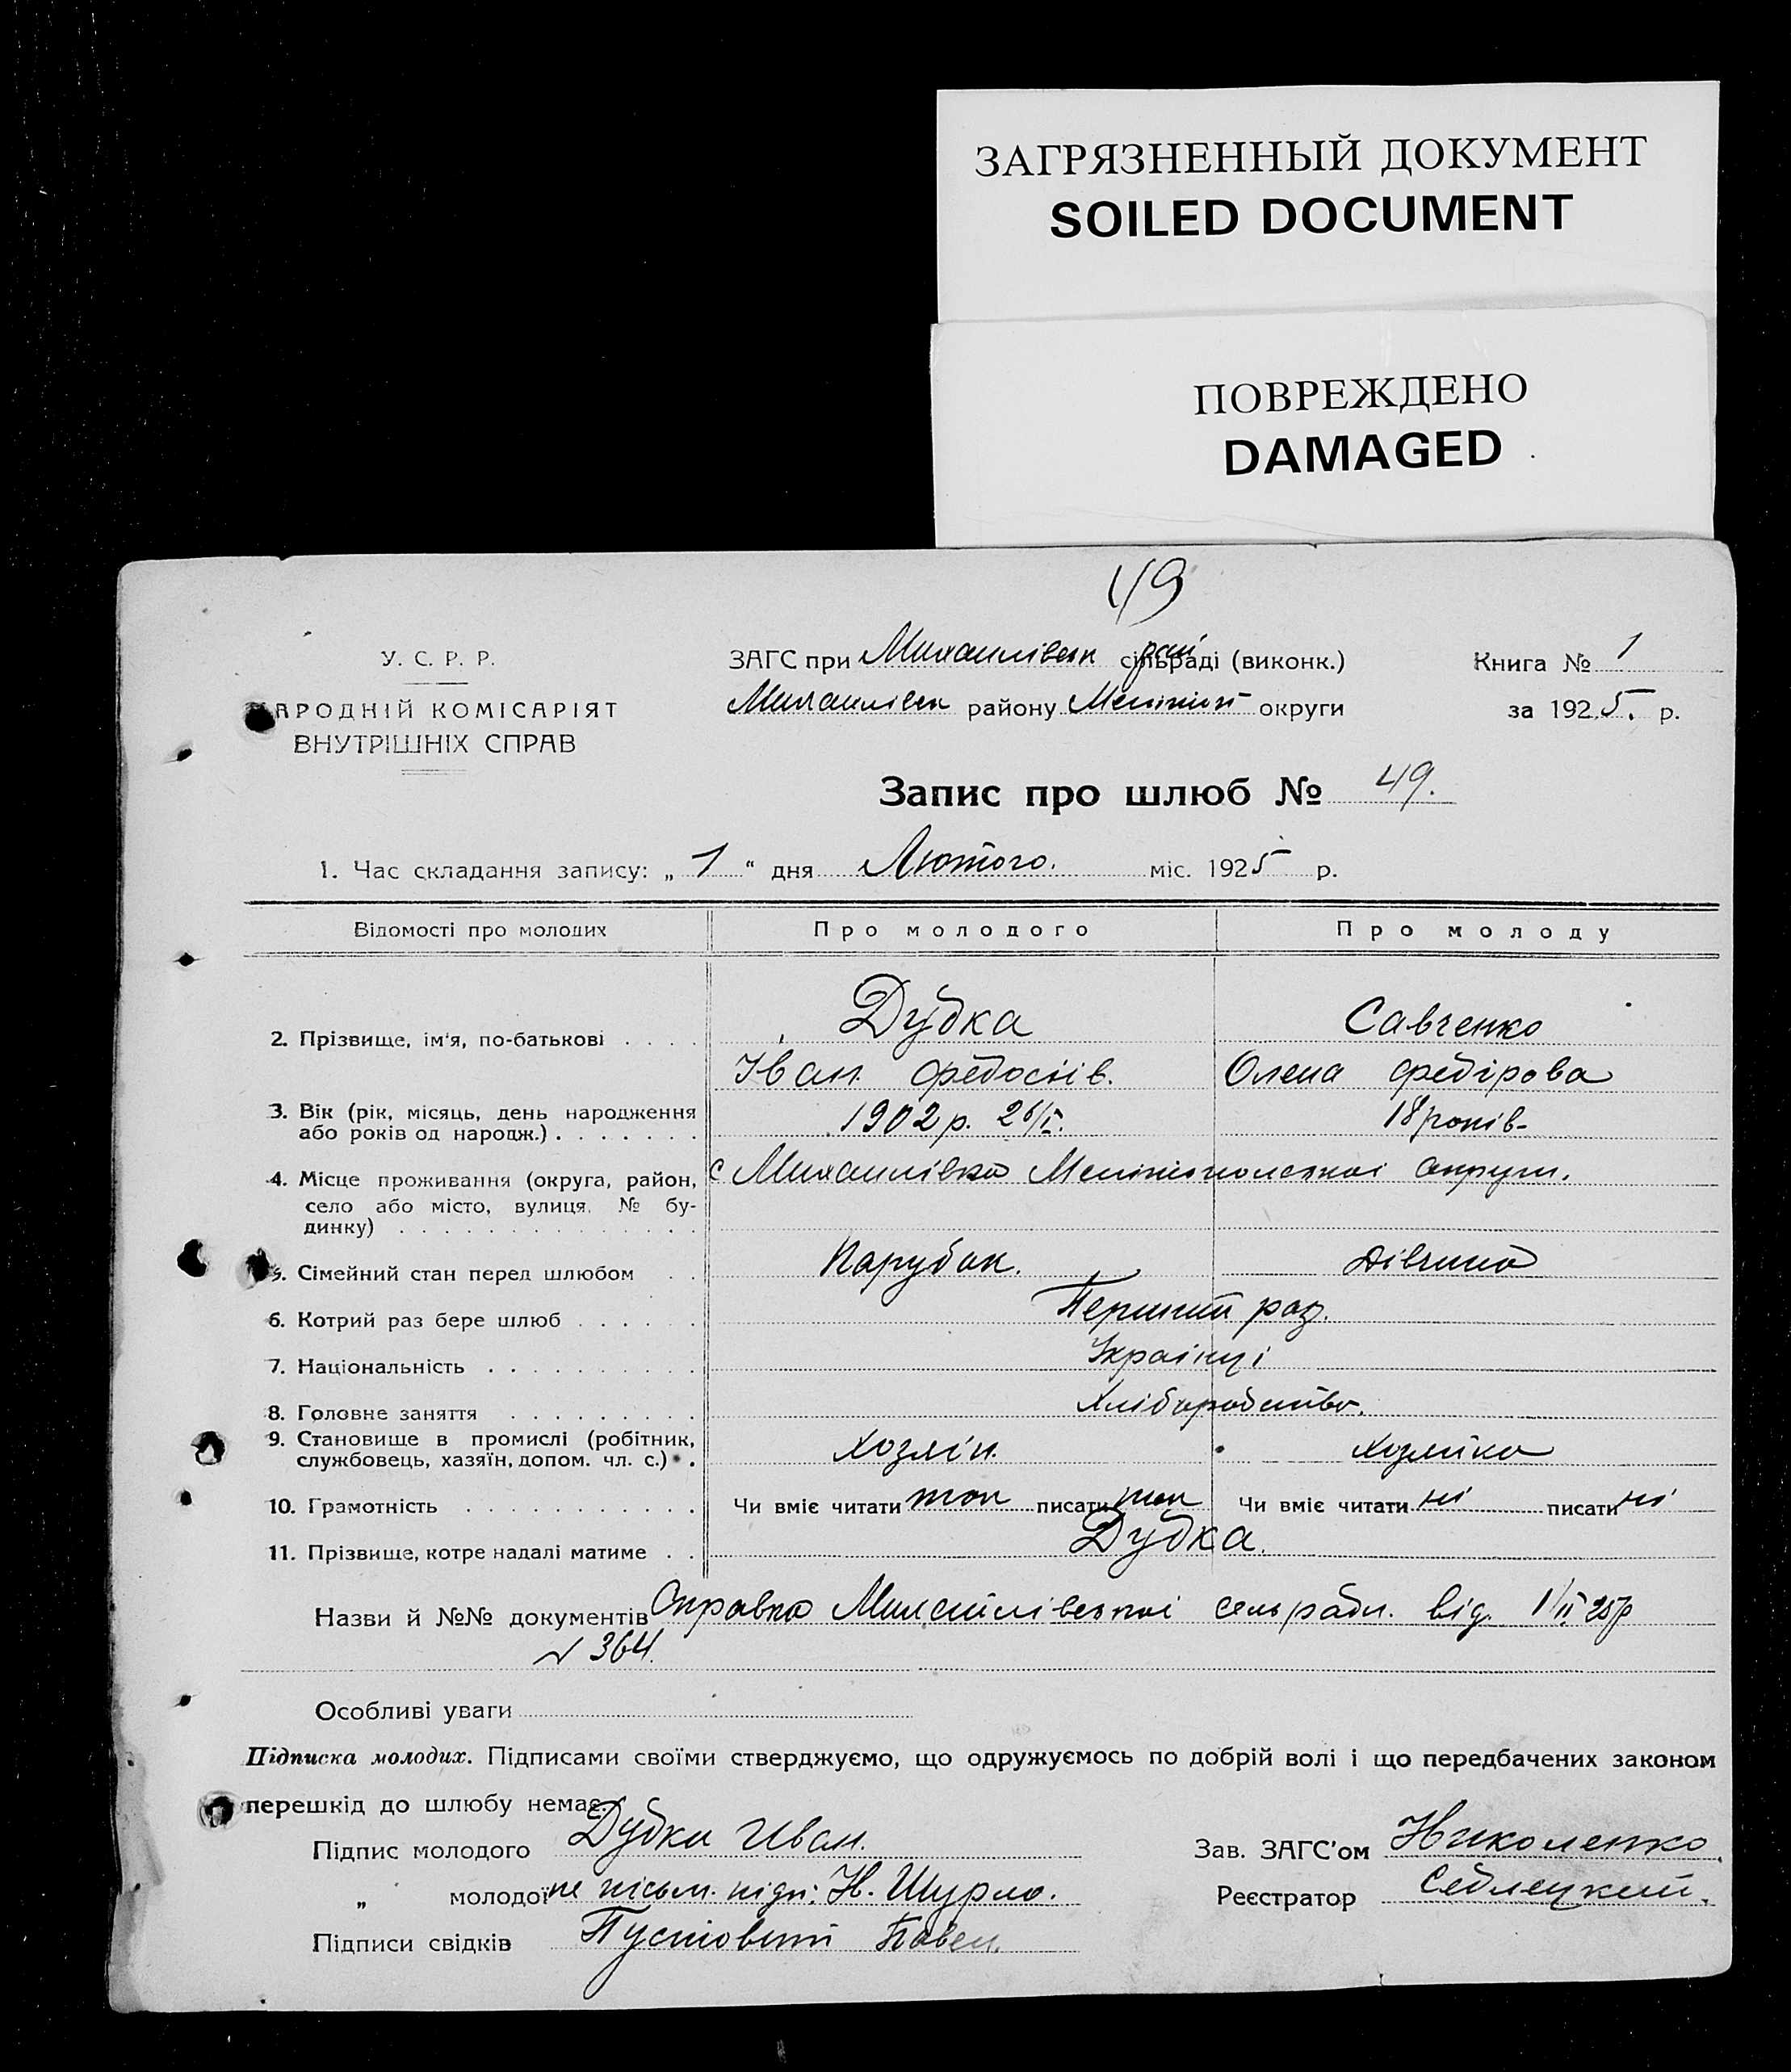 ЗАГРЯЗНЕННЫЙ ДОКУМЕНТ
SOILED DOCUMENT
ПОВРЕЖДЕНО
DAMAGED
49
У. С. Р. Р.
АРОДНІЙ КОМІСАРІЯТ
ВНУТРІШНІХ СПРАВ
ЗАГС при Михайлівськ рай сільраді (виконк.)
Михайлівськ району Меліт округи
Книга № 1
за 1925. р.
Запис про шлюб № 49.
1. Час складання запису: „ 1 “ дня Лютого. міс. 1925 р.
Відомості про молодих Про молодого Про молоду
2. Прізвище, ім'я, по-батькові . . . . Дубка Савченко
Іван Федосіїв. Олена Федірова
3. Вік (рік, місяць, день народження
або років од народж.) . . . . . . . 1902 р. 26/І. 18 років
4. Місце проживання (округа, район, с Михайлівка Мелітопольскої округи.
село або місто, вулиця, № бу-
динку) . . . . . . . . . . . . . .
5. Сімейний стан перед шлюбом . . Парубок. Дівчина
6. Котрий раз бере шлюб . . . . . . Перший раз.
7. Національність . . . . . . . . . . Українці
8. Головне заняття . . . . . . . . . Хліборобство.
9. Становище в промислі (робітник,
службовець, хазяїн, допом. чл. с.) . . Хозяїн. Хозяйка
10. Грамотність . . . . . . . . . . . Чи вміє читати так писати так Чи вміє читати ні писати ні
11. Прізвище, котре надалі матиме . . Дубка.
Назви й №№ документів Справка Михайлівської сельради. від. 1/ІІ 25р
№ 364.
Особливі уваги
Підписка молодих. Підписами своїми стверджуємо, що одружуємось по добрій волі і що передбачених законом
перешкід до шлюбу немає.
Підпис молодого Дубка Иван.
„ молодої не письм. підп: Н. Шурло.
Підписи свідків Пустовит Павел.
Зав. ЗАГС'ом Николенко.
Реєстратор Седлецкий.